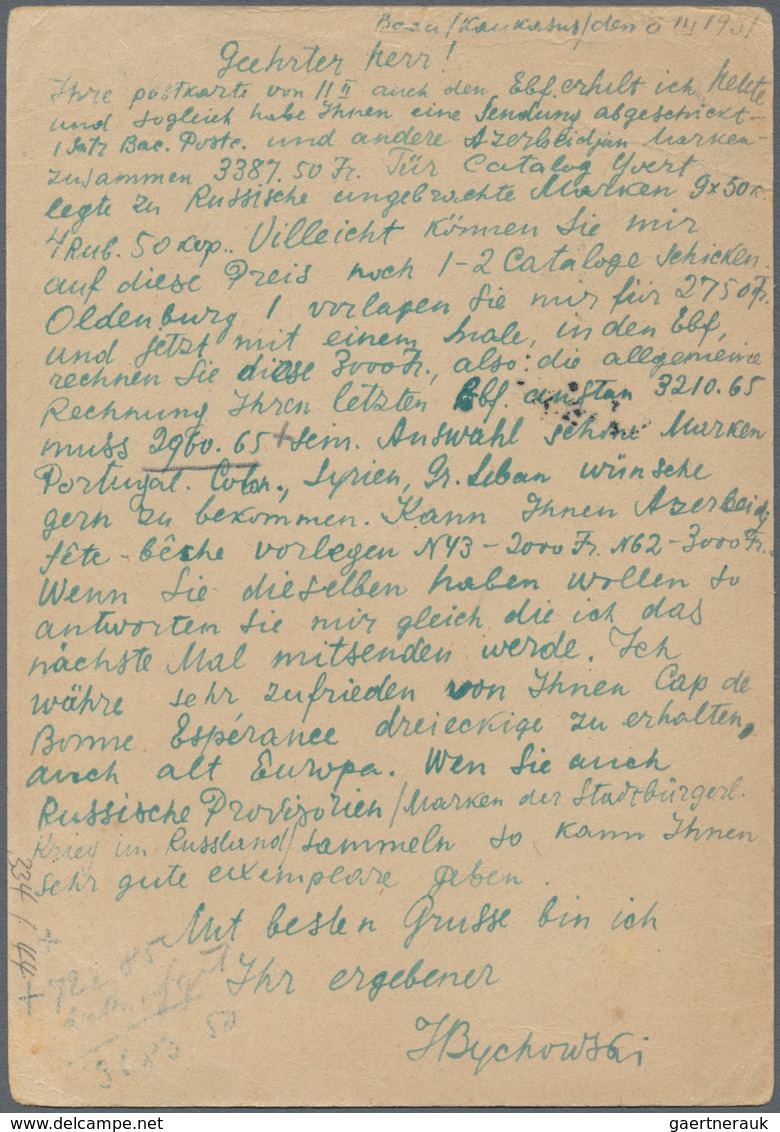 Baku /Kaukasus/ den 6 III 1931
Geehrter Herr!
Ihre postkarte von 11 II auch den Ebf. erhilt ich heute
und sogleich habe Ihnen eine Sendung abgeschickt-
1 Satz Bac. Postc. und andere Azerbeidjan Marken-
zusammen 3387.50 Fr. Für Catalog Yvert
legte zu Russische ungebrachte Marken 9x50 k.
4 Rub. 50 kop.. Villeicht können Sie mir
auf diese Preis noch 1-2 Cataloge schicken.
Oldenburg 1 vorlagen Sie mir für 2750 Fr.
und jetzt mit einem male, in den Ebf,
rechnen Sie diese 3000 Fr., also die allgemeine
Rechnung Ihren letzten Ebf. anstan 3210.65
muss 2960.65 + sein. Auswahl schöne Marken
Portugal. Colon., Syrien, Gr. Liban wünsche
gern zu bekommen. Kann Ihnen Azerbeidj.
tête-bêche vorlegen N43-2000 Fr. N62-3000 Fr.
Wenn Sie dieselben haben wollen so
antworten Sie mir gleich die ich das
nächste Mal mitsenden werde. Ich
währe sehr zufrieden von Ihnen Cap de
Bonne Espérance dreieckige zu erhalten,
auch alt Europa. Wen Sie auch
Russische Provizorien /Marken der Stadtbürgerl.
Krieg im Russland/ sammeln so kann Ihnen
sehr gute exemplare geben.
Mit besten Grusse bin ich
Ihr ergebener
JBychowski
234 / 44 +
3683 50
gaertnerauk